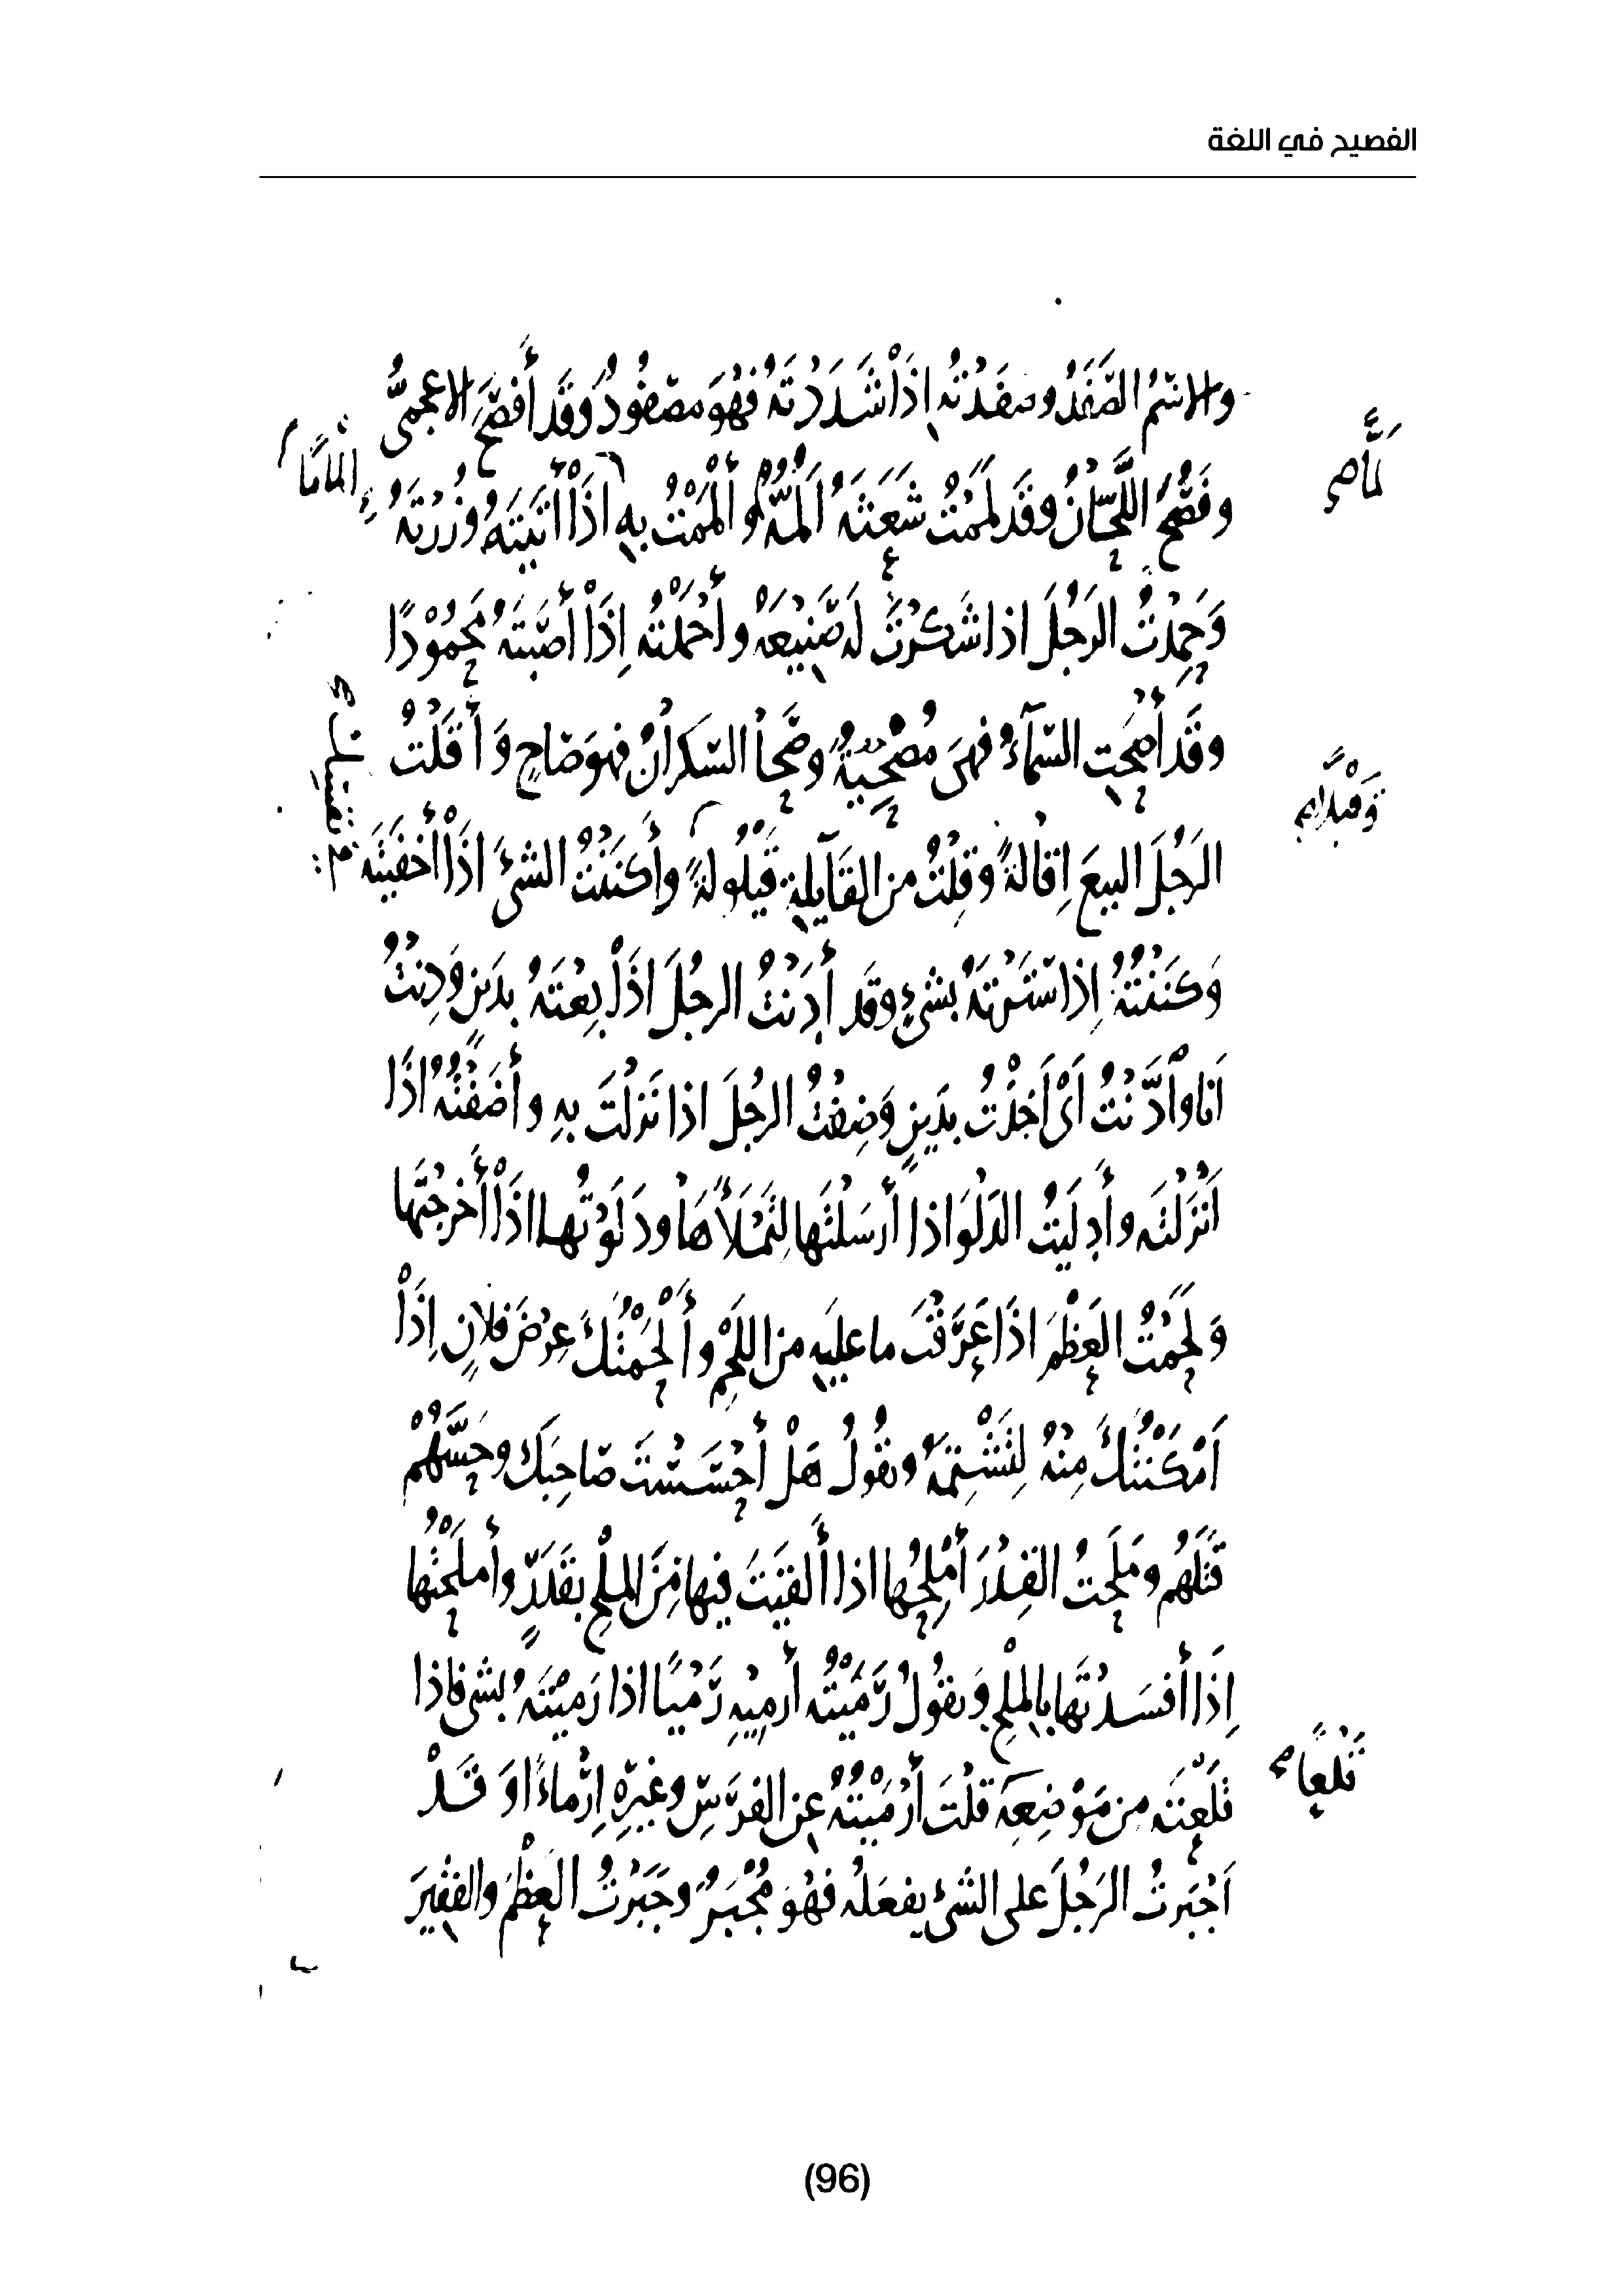 الفصيح في اللغة
والاسْمُ الصَّفَدُ وصفَدْتُه إِذَا شَدَدْتَهُ فَهُوَ مصْفُودٌ وَقَد أَفصَحَ الاعجمىُّ
وفَصُحَ اللَّحَّانُ وقَد لَمَمْتُ شَعَثَهُ أَلُمُّهُ وأَلْمَمْتُ بِهِ اذَا أَتَيتَهُ وزُرْتَهُ
إِلْمَامًا
لَمًّا صح
وَحَمِدْتُ الرَجُلَ اذا شَكَرْتَ لَه صَنِيعَهُ وأَحْمَدْتُه إِذَا أَصَبْتَهُ مَحْمُوْدًا
وقَد أَصْحَتِ السَّمَآءُ فهىَ مُصْحِيَةٌ وصَحَا السَّكرَانُ فهوَ صَاحٍ وَأَقَلْتُ
الرَجُلَ البيعَ إِقَالةً وَقِلْتُ من القَآيِلةِ قَيْلُولةً وأَكنَنْتُ الشىءَ اذَا أَخفَيتَه
وَكَنَنْتُهُ إِذا سَتَرْتَهُ بشىءٍ وقَد أَدَنْتُ الرجُلَ اذَا بِعْتَهُ بدَينٍ وَدِنْتُ
أَنا وَادَّنْتُ أَىْ أَخَذْتُ بدَينٍ وَضِفْتُ الرجُلَ اذا نَزَلْتَ بِهِ وأَضَفْتُهُ اذَا
أَنْزَلْتَه وأَدلَيتُ الدَلْوَ اذا أَرسَلْتَها لِتَمْلَأَهَا ودَلَوْتُها اذَا أَخرجْتَها
وَلَحَمْتُ العَظْمَ اذَا عَرَّقْتَ ما علَيهِ من اللَحْمِ وأَلْحَمْتُكَ عِرْضَ فلانٍ إِذَا
أَمْكَنْتُكَ مِنْهُ لِتَشْتِمَهُ وتقُولُ هَلْ أَحْسَسْتَ صَاحِبَكَ وحَسَّهُمْ
قَتَلَهُم ومَلَحتُ القِدْرَ أَمْلِحُها اذا أَلقَيتَ فيها مِنَ المِلْحِ بقَدَرٍ وأَملَحْتُها
إِذَا أَفسَدْتَها بِالمِلْحِ وَتقُولُ رَمَيْتُه أَرمِيْهِ رَمْيًا اذا رَميْتَهُ بشىءٍ فاذا
قلَعْتَه من مَوْضِعِهِ قلْتَ أَرْمَيْتُهُ عن الفرَسِ وغيرِهِ إِرْماءً وَقَدْ
قَلْعًا صح
أَجْبَرتُ الرَجُلَ على الشىءِ يفعَلُه فهُوَ مُجْبَرٌ وجَبَرْتُ العَظْمَ والفقيرَ
(96)